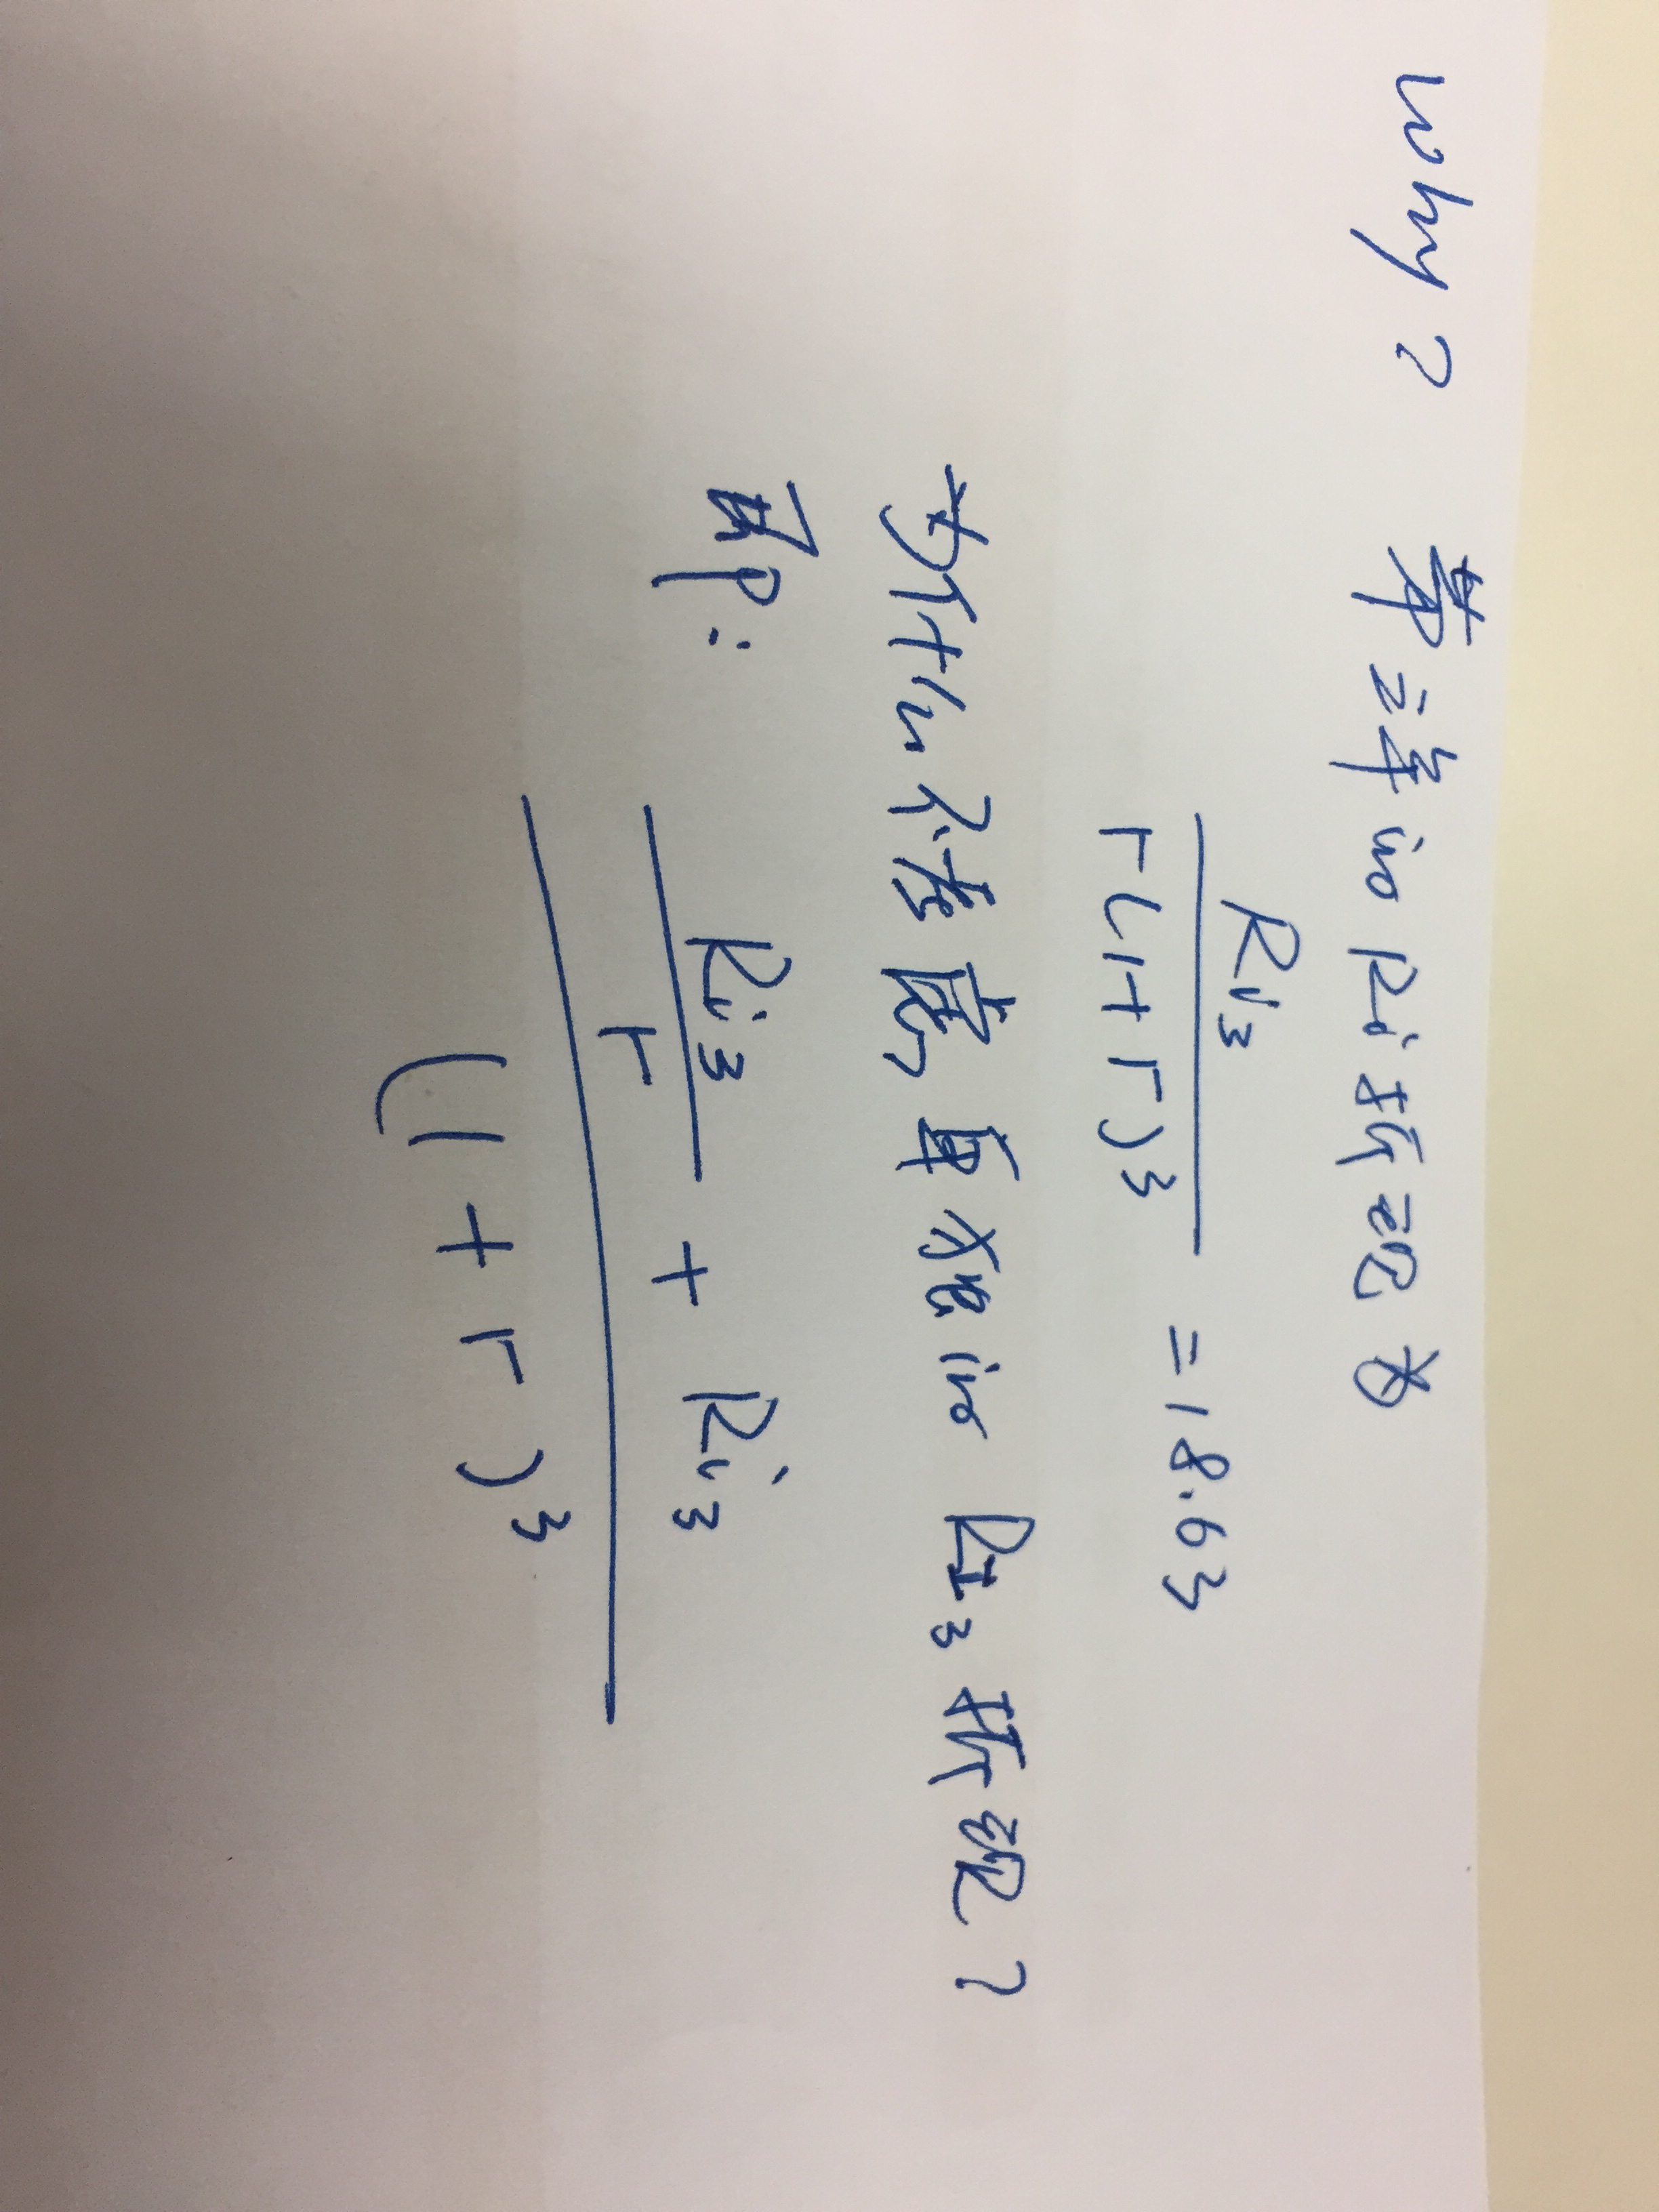 Why? 第三年的Ri折现为
Ri3 / r(1+r)^3 = 18.63
为什么不考虑,单独的RI3折现?
即:
(Ri3/r + Ri3) / (1+r)^3